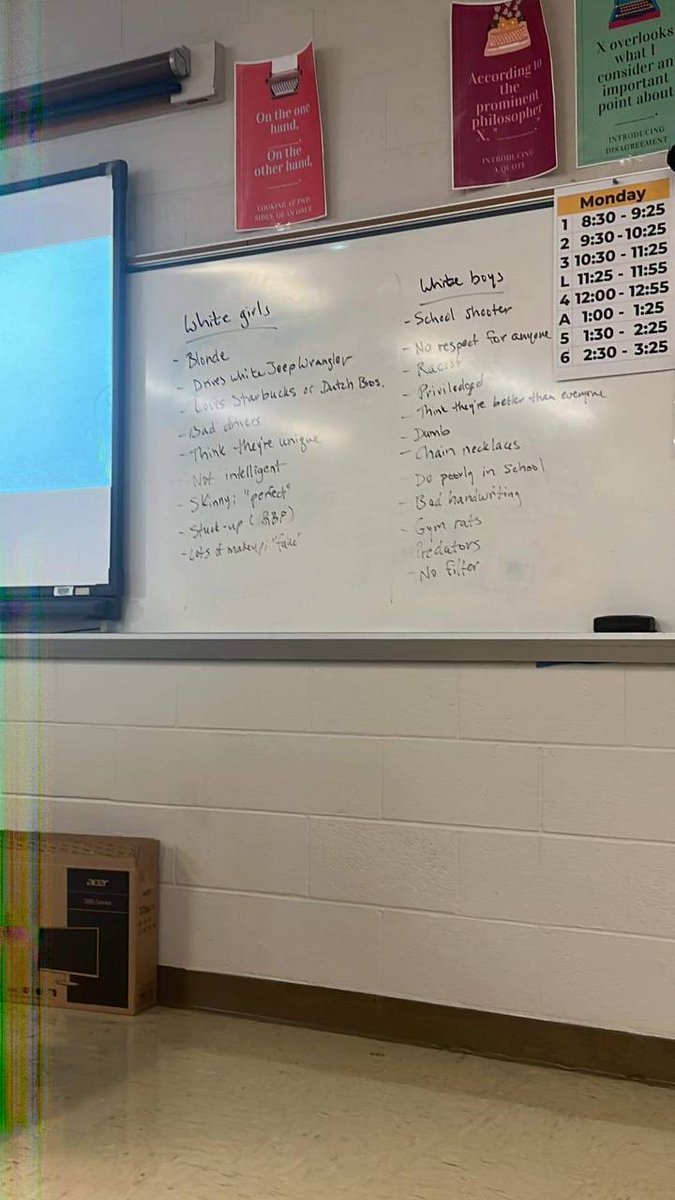 On the one
hand,
On the
other hand,
LOOKING AT TWO
SIDES OF AN ISSUE
According to
the
prominent
philosopher
X, "
INTRODUCING
A QUOTE
X overlooks
what I
consider an
important
point about
INTRODUCING
DISAGREEMENT
Monday
1 8:30 - 9:25
2 9:30 - 10:25
3 10:30 - 11:25
L 11:25 - 11:55
4 12:00 - 12:55
A 1:00 - 1:25
5 1:30 - 2:25
6 2:30 - 3:25
White girls
- Blonde
- Drives white Jeep Wrangler
- Loves Starbucks or Dutch Bros.
- Bad drivers
- Think they're unique
- Not intelligent
- Skinny; "perfect"
- Stuck-up (RBF)
- Lots of makeup; "fake"
White boys
- School shooter
- No respect for anyone
- Racist
- Priviledged
- Think they're better than everyone
- Dumb
- Chain necklaces
- Do poorly in school
- Bad handwriting
- Gym rats
- Predators
- No filter
acer